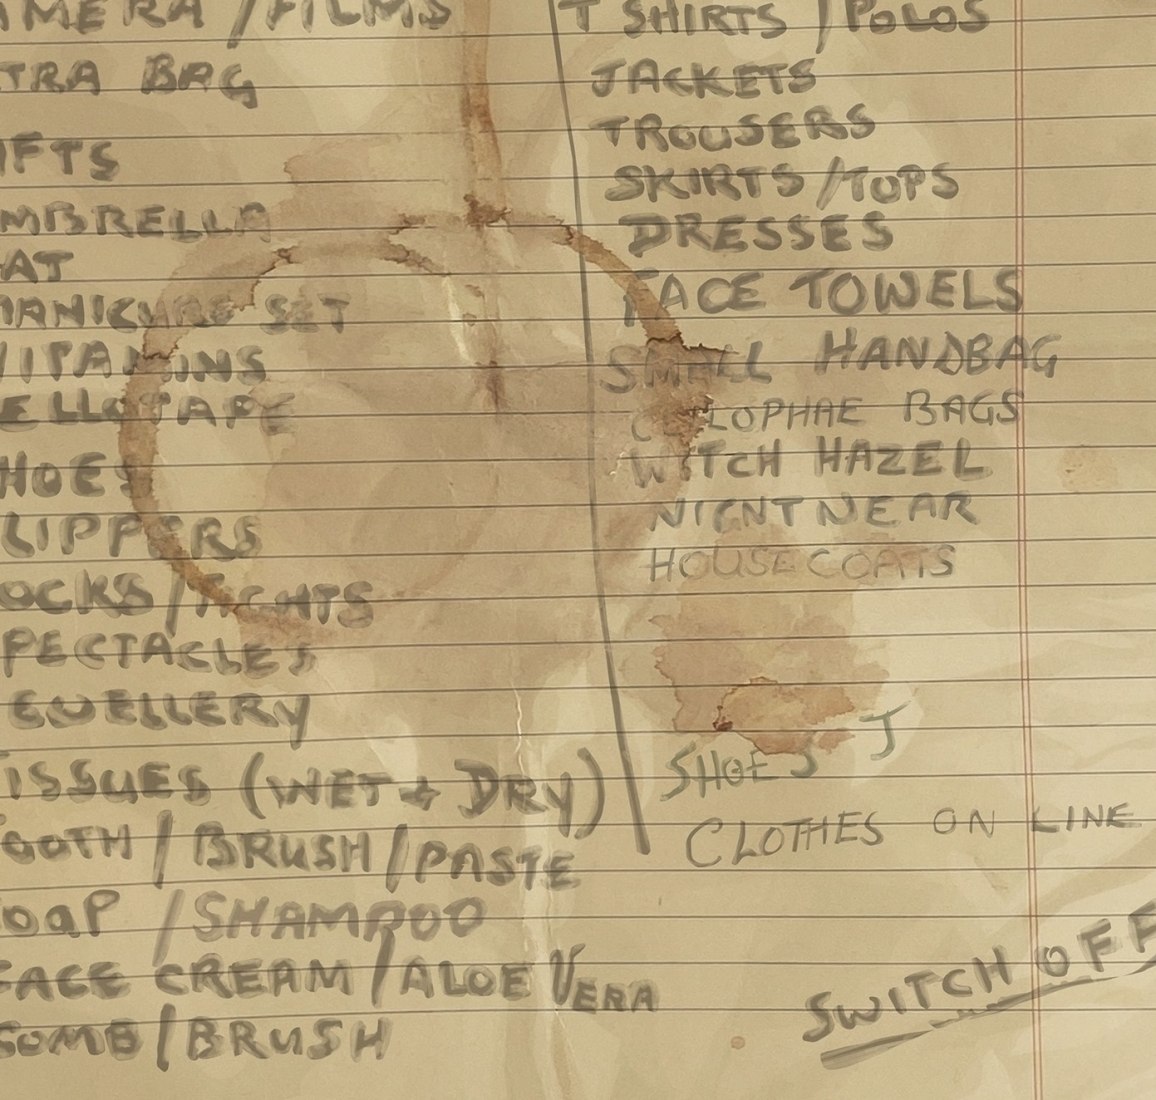 AMERA / FILMS
TRA BAG
IFTS
MBRELLA
AT
MANICURE SET
VITAMINS
ELLOTAPE
HOES
LIPPERS
OCKS / TIGHTS
PECTACLES
EWELLERY
TISSUES (WET + DRY)
OOTH / BRUSH / PASTE
OAP / SHAMPOO
FACE CREAM / ALOE VERA
COMB / BRUSH
T SHIRTS / POLOS
JACKETS
TROUSERS
SKIRTS / TOPS
DRESSES
FACE TOWELS
SMALL HANDBAG
CELLOPHAE BAGS
WITCH HAZEL
NIGNTNEAR
HOUSECOATS
SHOES J
CLOTHES ON LINE
SWITCH OFF